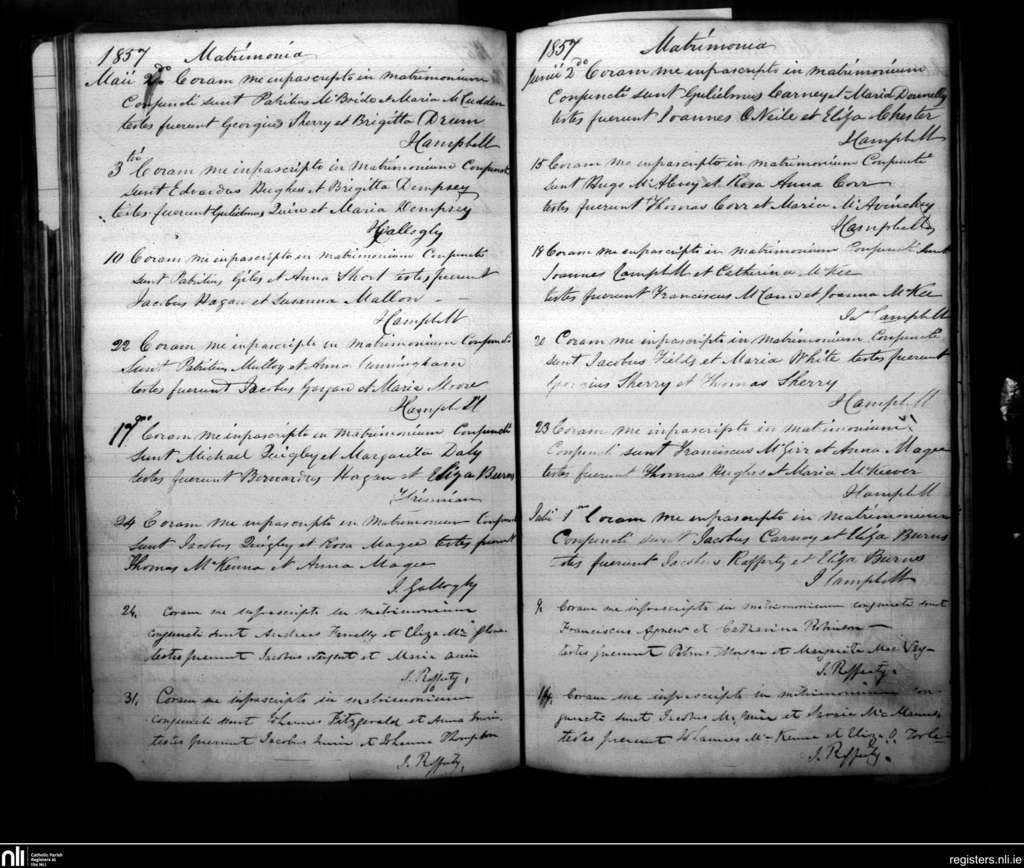 1857 Matrimonia
Maii 2do Coram me infrascripto in matrimonium
Conjuncti sunt Patritius McBride et Maria McCudden
testes fuerunt Georgius Sherry et Brigitta Drum
J Campbell
3tio Coram me infrascripto in matrimonium Conjuncti
sunt Edvardus Hughes et Brigitta Dempsey
testes fuerunt Gulielmus Quin et Maria Dempsey
J Gallogly
10 Coram me infrascripto in matrimonium Conjuncti
sunt Patritius Giles et Anna Short testes fuerunt
Jacobus Hagan et Susanna Mallon
J Campbell
22 Coram me infrascripto in matrimonium Conjuncti
Sunt Patritius Mulloy et Anna Cunningham
testes fuerunt Jacobus Gargan et Maria Moore
J Campbell
17mo Coram me infrascripto in matrimonium Conjuncti
Sunt Michael Quigley et Margarita Daly
testes fuerunt Bernardus Hagan et Eliza Burns
24 Coram me infrascripto in Matrimonium Conjuncti
sunt Jacobus Quigley et Rosa Magee testes fuerunt
Thomas McKenna et Anna Magee
J. Gallogly
24. Coram me infrascripto in matrimonium
conjuncti sunt Andreas et Eliza Mc
testes fuerunt Jacobus Nugent et Maria Quin
J. Rafferty.
31. Coram me infrascripto in matrimonium
conjuncti sunt Johannes Fitzgerald et Anna Irwin.
testes fuerunt Jacobus Irwin et Johanna Thompson
J. Rafferty.
1857 Matrimonia
Junii 2do Coram me infrascripto in matrimonium
Conjuncti sunt Gulielmus Carney et Maria Donnelly
testes fuerunt Joannes O'Neile et Eliza Chester
J Campbell
15 Coram me infrascripto in matrimonium Conjuncti
sunt Hugo McAlvey et Rosa Anna Corr
testes fuerunt Thomas Corr et Maria McAvinchey
J Campbell
18 Coram me infrascripto in matrimonium Conjuncti sunt
Joannes Campbell et Catherina McKee
testes fuerunt Franciscus McCann et Joanna McKee
Jas Campbell
20 Coram me infrascripto in matrimonium Conjuncti
sunt Jacobus Fields et Maria White testes fuerunt
Georgius Sherry et Thomas Sherry
J Campbell
23 Coram me infrascripto in matrimonium
Conjuncti sunt Franciscus McGirr et Anna Magee
testes fuerunt Thomas Hughes et Maria McKeever
J Campbell
Julii 1mo Coram me infrascripto in matrimonium
Conjuncti sunt Jacobus Carney et Eliza Burns
testes fuerunt Jacobus Rafferty et Eliza Burns
J Campbell
9. Coram me infrascripto in matrimonium conjuncti sunt
Franciscus Agnew et Catharina Robinson
testes fuerunt Petrus et Margarita Mac
J. Rafferty.
14. Coram me infrascripto in matrimonium con-
juncti sunt Jacobus McGuire et Maria McManus
testes fuerunt Johannes McKenna et Eliza O'Toole
J. Rafferty.
nli
Catholic Parish
Registers at
the NLI
registers.nli.ie